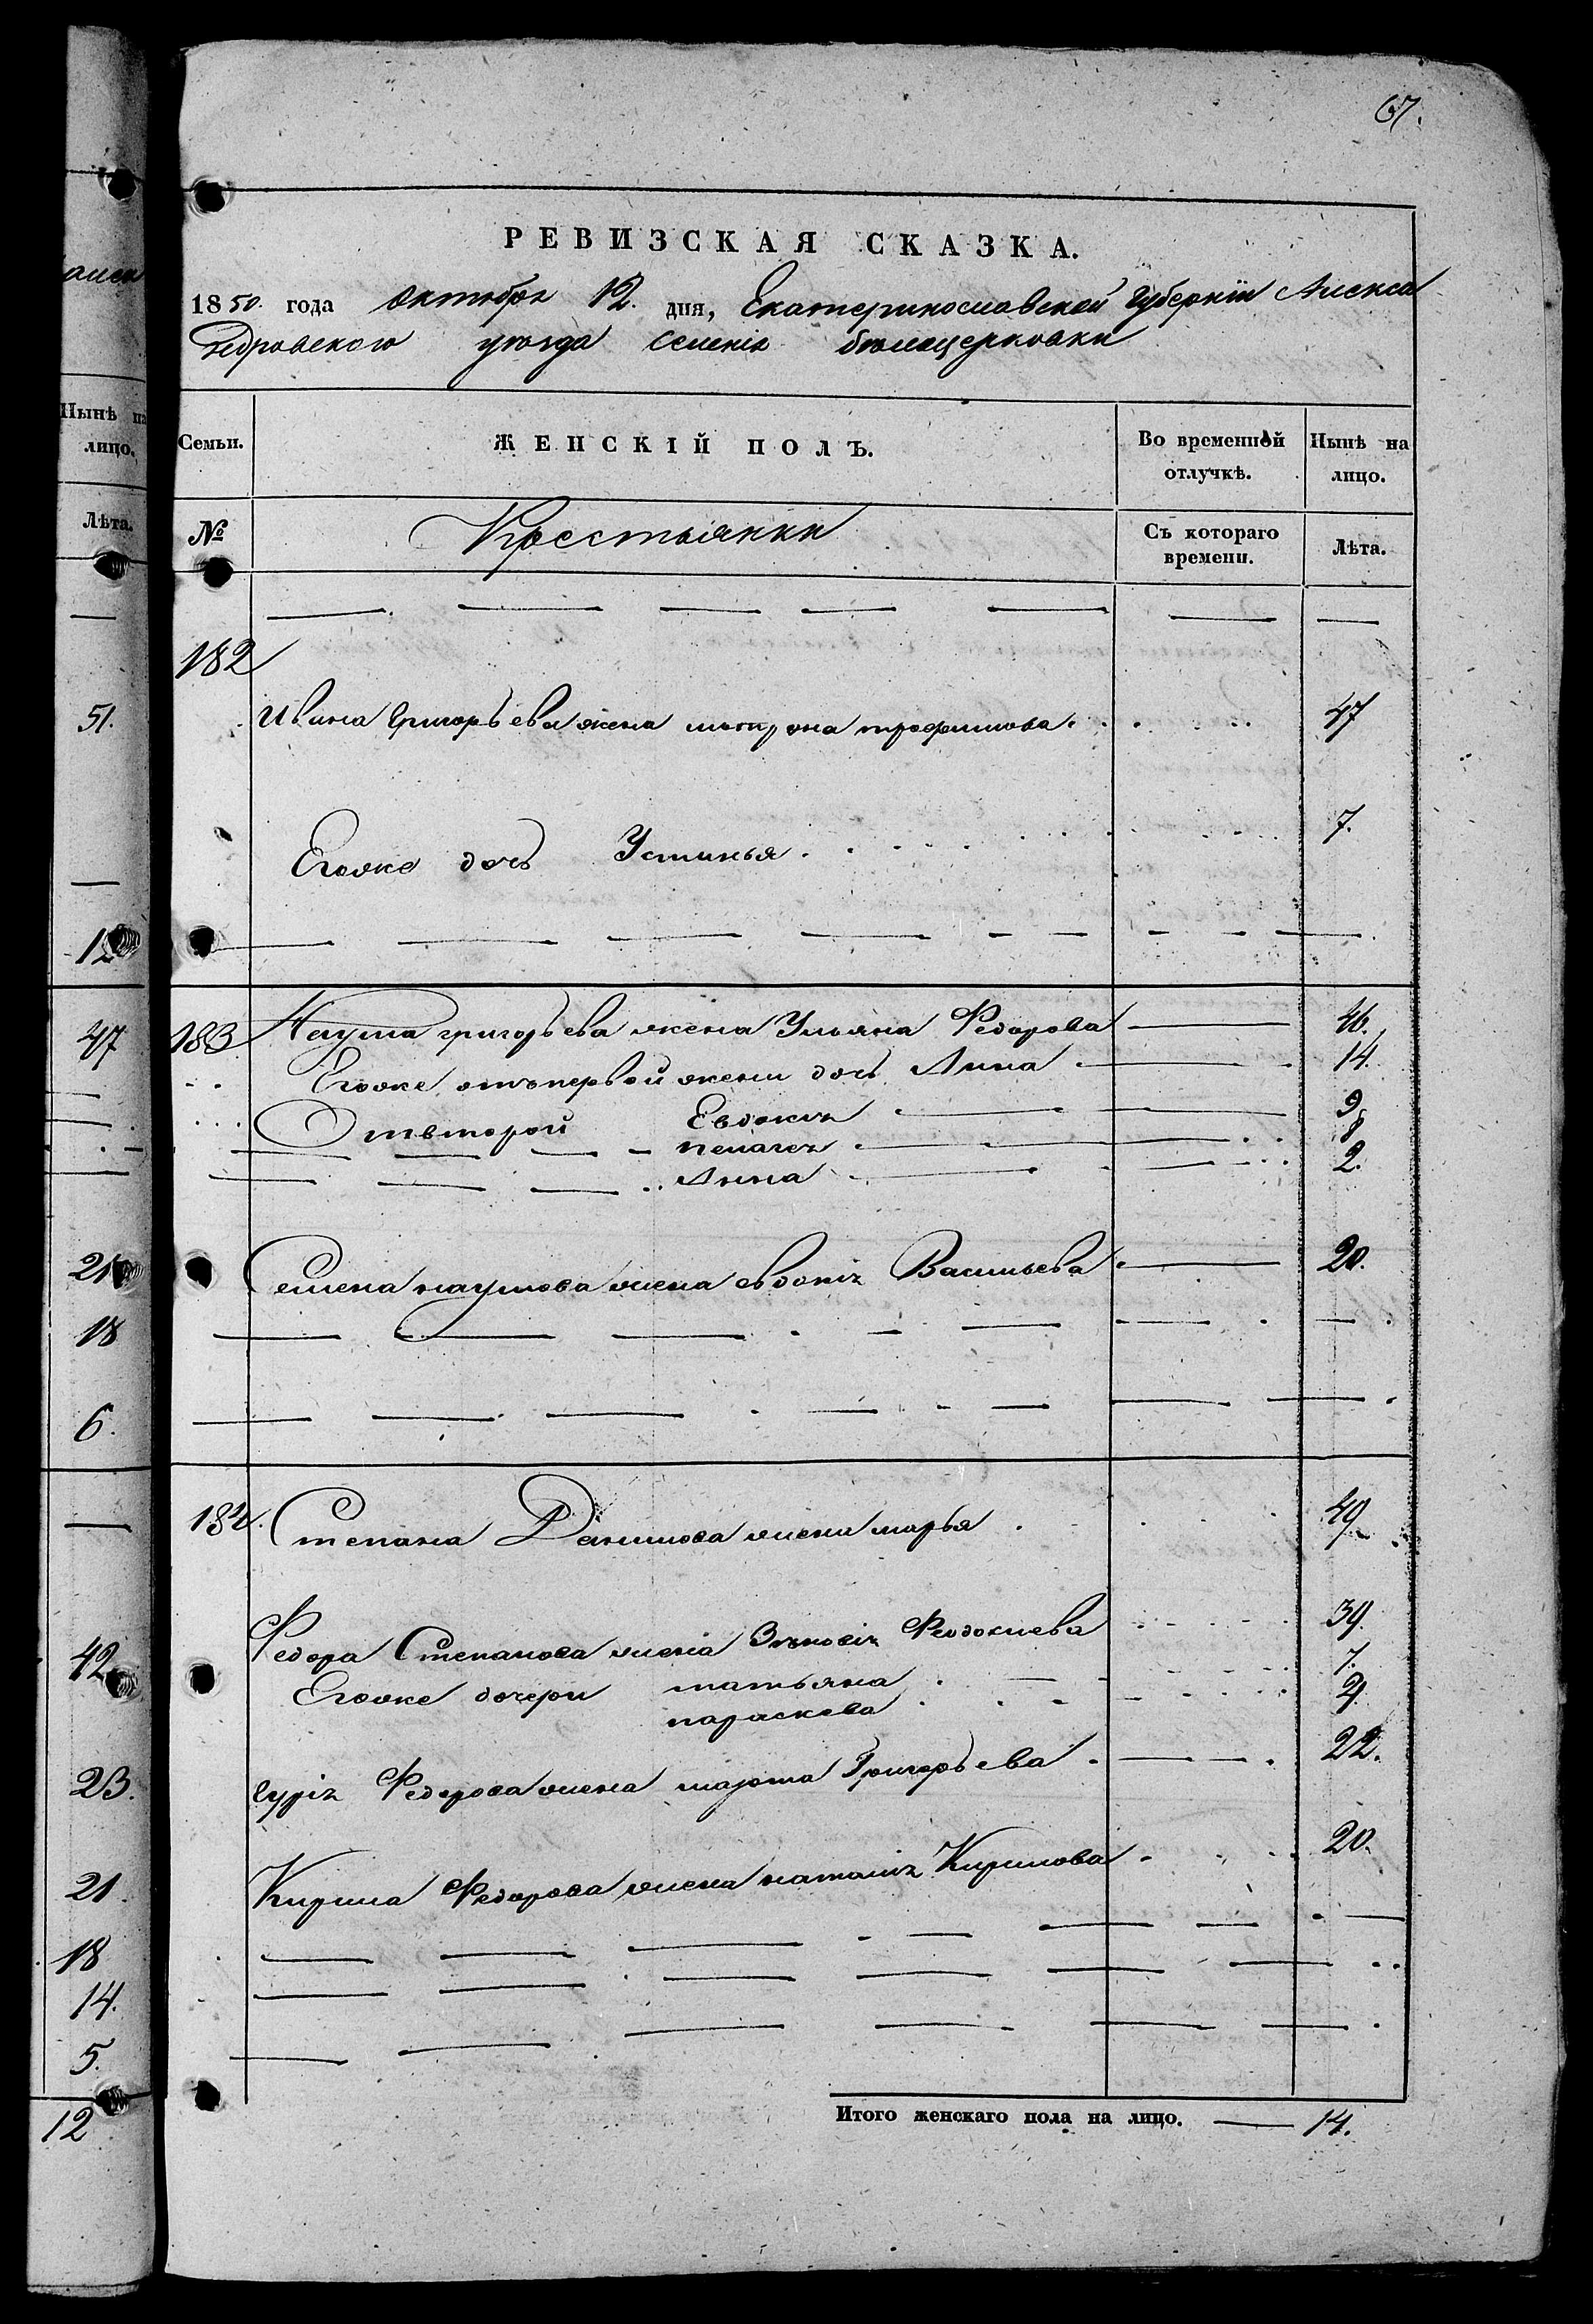 67.
аиск
РЕВИЗСКАЯ СКАЗКА.
1850. года Октября 12. дня, Екатеринославской Губерніи Алекса
ндровского уѣзда Селенія бѣлоцерковки
Нынѣ на лицо.
Лѣта.
Семьи.
ЖЕНСКІЙ ПОЛЪ.
Во временной отлучкѣ.
Нынѣ на лицо.
№
Крестьянки
Съ котораго времени.
Лѣта.
182
51.
Ивана Григорьева жена матрона трофимова. 47
Егоже дочь Устинья. 7.
12
47
183 Наума григорьева жена Ульяна Федорова 46.
Егоже отъ первой жены дочь Анна 14.
Отъ второй Евдокія 9
пелагея 8
Анна 2.
21
Семена наумова жена евдокія Васильева 20.
18
6.
184. Степана Данилова жена марья 49
42
Федора Степанова жена Зѣновія 39.
Егоже дочери татьяна 7.
параскева 2.
23.
Гурія Федорова жена марта Григорьева 22.
21.
Кирила Федорова жена наталія Кирилова 20.
18
14.
5.
12
Итого женскаго пола на лицо. 14.